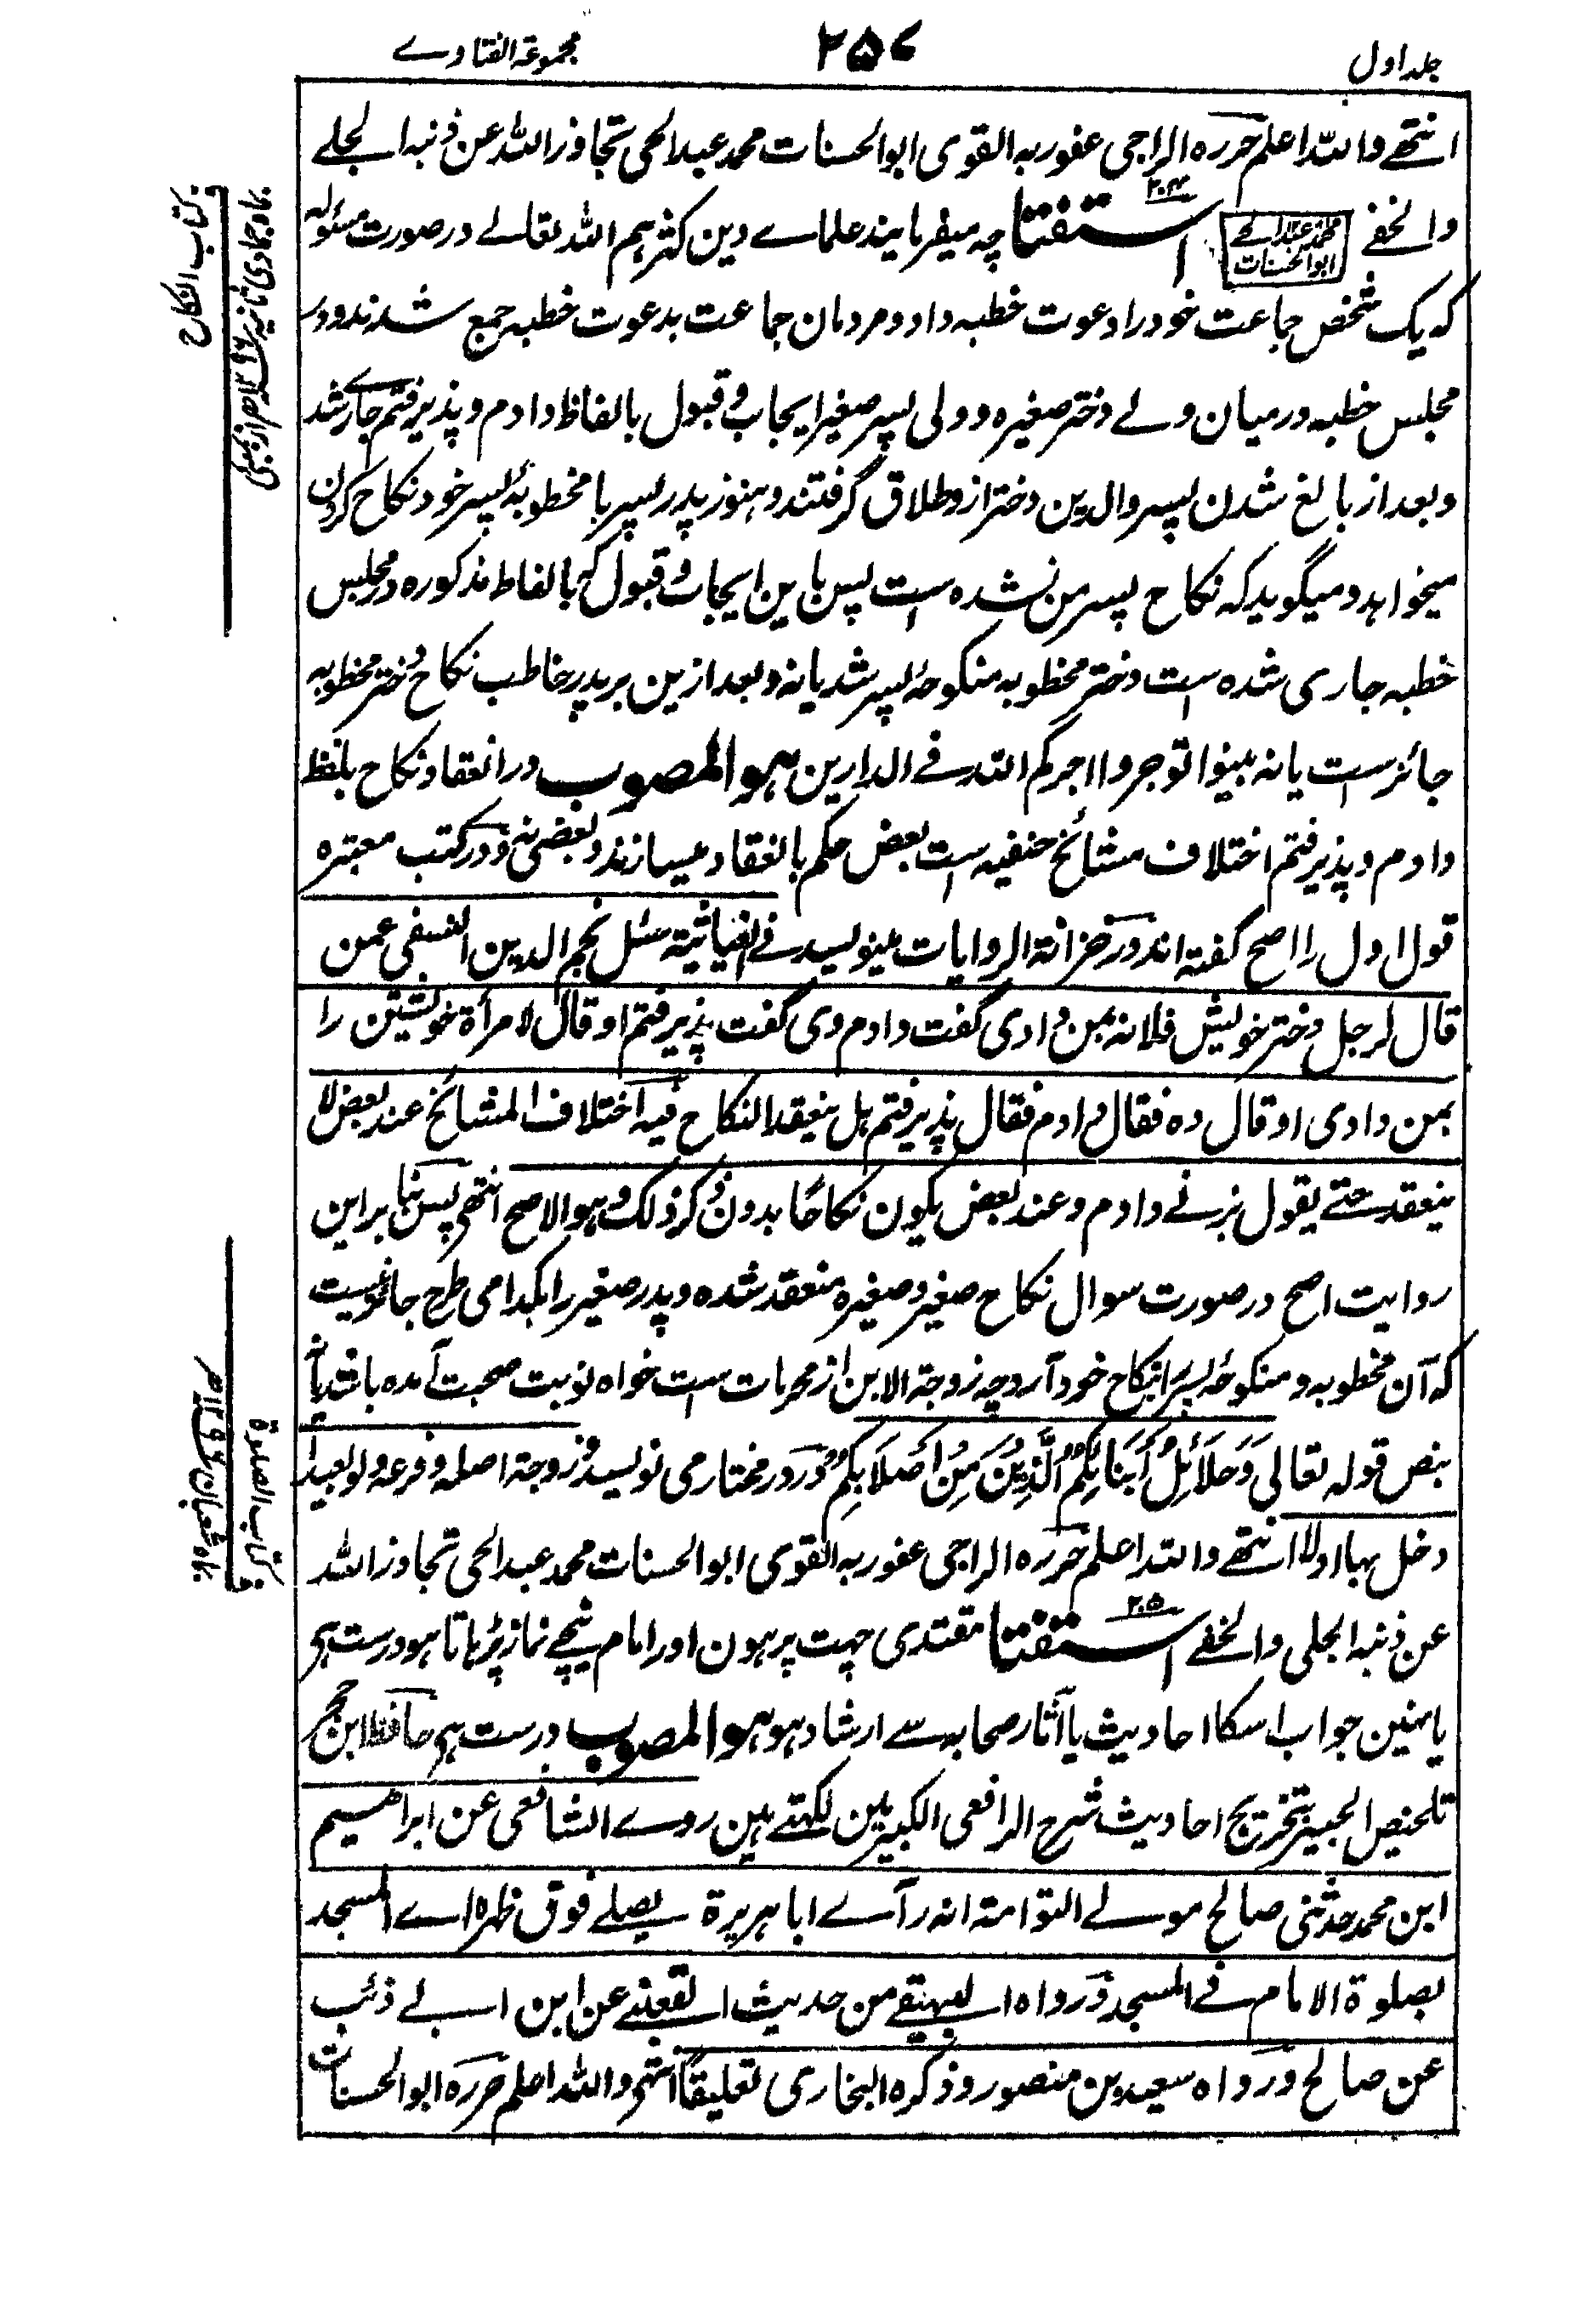 جلد اول
۲۵۷
مجموعة الفتاوے
انتھے واللہ اعلم حررہ الراجی عفو ربہ القوی ابو الحسنات محمد عبد الحی تجاوز اللہ عن ذنبہ الجلے
والخفے محمد عبد الحے ابو الحسنات استفتا ۲۰۴ چہ میفرمایند علماے دین کثرہم اللہ تعالے درصورت مسئولہ
کہ یک شخص جماعت خود را دعوت خطبہ داد و مردمان جماعت بدعوت خطبہ جمع شدند و در
مجلس خطبہ درمیان ولے دختر صغیرہ و ولی پسر صغیر ایجاب و قبول بالفاظ دادم و پذیرفتم جارے شد
و بعد از بالغ شدن پسر والدین دختر ازو طلاق گرفتند و ہنوز پدر پسر با مخطوبۂ پسر خود نکاح کردن
میخواہد و میگوید کہ نکاح پسر من نشدہ است پس باین ایجاب و قبول کہ بالفاظ مذکورہ در مجلس
خطبہ جاری شدہ است دختر مخطوبہ منکوحۂ پسر شد یا نہ و بعد ازین بر پدر خاطب نکاح دختر مخطوبہ
جائز ست یا نہ بینوا توجروا اجرکم اللہ فے الدارین ہو المصوب در انعقاد نکاح بلفظ
دادم و پذیرفتم اختلاف مشائخ حنفیہ است بعض حکم بانعقاد میسازند و بعضی نہ و در کتب معتبرہ
قول اول را اصح گفتہ اند در خزانة الروایات مینویسد فے الغیاثیة سئل نجم الدین النسفی عمن
قال لرجل دختر خویش فلانہ بمن دادی گفت دادم وی گفت پذیرفتم او قال لامرأة خویشتن را
بمن دادی او قال دہ فقال دادم فقال پذیرفتم ہل ینعقد النکاح فیہ اختلاف المشائخ عند بعض لا
ینعقد حتے یقول بزنے دادم و عند بعض یکون نکاحًا بدون ذکر ذلک و ہو الاصح انتھی پس بنا بر این
روایت اصح در صورت سوال نکاح صغیر و صغیرہ منعقد شدہ و پدر صغیر را بکدامی طرح جائز نیست
کہ آن مخطوبہ و منکوحۂ پسر را بنکاح خود آرد چہ زوجة الابن از محرمات است خواہ نوبت صحبت آمدہ باشد یا نہ
بنص قولہ تعالی وَحَلَائِلُ أَبْنَائِكُمُ الَّذِیْنَ مِنْ أَصْلَابِكُمْ و در در مختار می نویسد و زوجة اصلہ و فرعہ ولو بعیدا
دخل بہا اولا انتھے واللہ اعلم حررہ الراجی عفو ربہ القوی ابو الحسنات محمد عبد الحی تجاوز اللہ
عن ذنبہ الجلی والخفے استفتا ۲۰۵ مقتدی چہت پر ہون اور امام نیچے نماز پڑہاتا ہو درست ہی
یا نہین جواب اسکا احادیث یا آثار صحابہ سے ارشاد ہو ہو المصوب درست ہی حافظ ابن حجر
تلخیص الحبیر بتخریج احادیث شرح الرافعی الکبیر مین لکہتے ہین روے الشافعی عن ابراھیم
ابن محمد حدثنی صالح مولے التوامة انہ رآے ابا ہریرة یصلے فوق ظہر المسجد
بصلوة الامام فے المسجد ورواہ البیہقے من حدیث القعنبے عن ابن ابے ذئب
عن صالح ورواہ سعید بن منصور وذکرہ البخاری تعلیقًا انتھی واللہ اعلم حررہ ابو الحسنات
کتاب النکاح
کتاب الصلوة